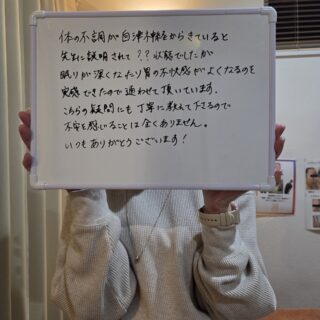 体の不調が自律神経からきていると
先生に説明されて？？状態でしたが
眠りが深くなったり胃の不快感がよくなるのを
実感できたので通わせて頂いています。
こちらの疑問にも丁寧に教えて下さるので
不安を感じることは全くありません。
いつもありがとうございます！